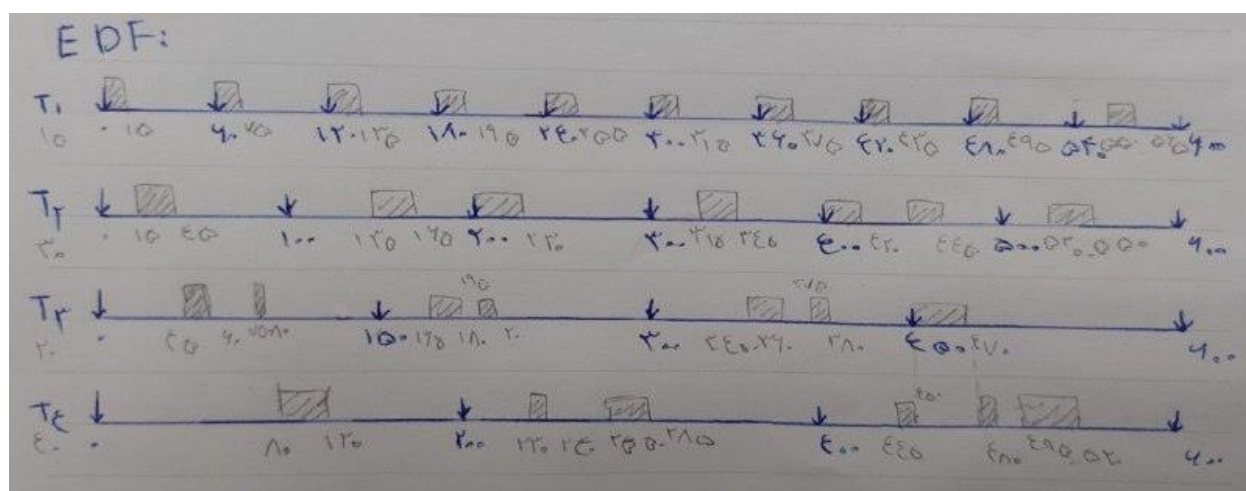 EDF:
T۱ ۱۵
۰ ۱۵ ۶۰ ۷۵ ۱۲۰ ۱۳۵ ۱۸۰ ۱۹۵ ۲۴۰ ۲۵۵ ۳۰۰ ۳۱۵ ۳۶۰ ۳۷۵ ۴۲۰ ۴۳۵ ۴۸۰ ۴۹۵ ۵۴۰ ۵۵۰ ۵۶۵ ۶۰۰
T۲ ۳۰
۰ ۱۵ ۴۵ ۱۰۰ ۱۳۵ ۱۶۵ ۲۰۰ ۲۳۰ ۳۰۰ ۳۱۵ ۳۴۵ ۴۰۰ ۴۲۰ ۴۴۵ ۵۰۰ ۵۲۰ ۵۵۰ ۶۰۰
۱۹۵ ۳۷۵
T۳ ۲۰
۰ ۴۵ ۶۰ ۷۵ ۸۰ ۱۵۰ ۱۶۵ ۱۸۰ ۲۰۰ ۳۰۰ ۳۴۵ ۳۶۰ ۳۸۰ ۴۵۰ ۴۷۰ ۶۰۰
۴۵۰
T۴ ۴۰
۰ ۸۰ ۱۲۰ ۲۰۰ ۲۳۰ ۲۴۰ ۲۵۵ ۲۸۵ ۴۰۰ ۴۴۵ ۴۸۰ ۴۹۵ ۵۲۰ ۶۰۰